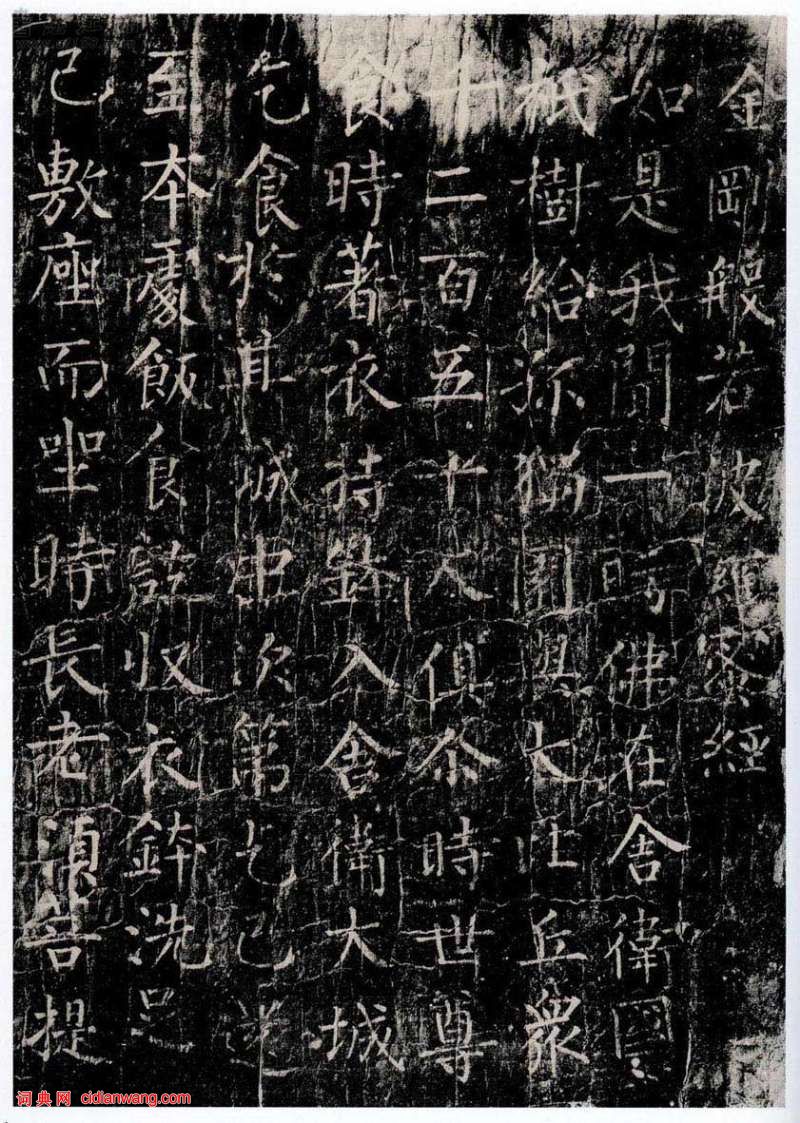 金剛般若波羅蜜經
如是我聞一時佛在舍衛國
祇樹給孤獨園與大比丘眾
千二百五十人俱尒時世尊
食時著衣持鉢入舍衛大城
乞食於其城中次第乞已還
至本處飯食訖收衣鉢洗足
已敷座而坐時長老須菩提
词典网 cidianwang.com